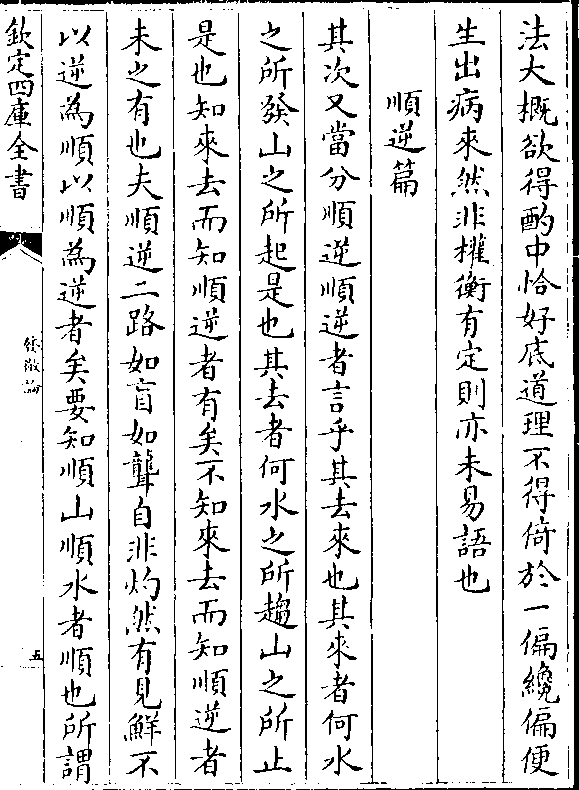 法大概欲得酌中恰好底道理不得倚於一偏纔偏便
生出病來然非權衡有定則亦未易語也
順逆篇
其次又當分順逆順逆者言乎其去來也其來者何水
之所發山之所起是也其去者何水之所趨山之所止
是也知來去而知順逆者有矣不知來去而知順逆者
未之有也夫順逆二路如盲如聾自非灼然有見鮮不
以逆為順以順為逆者矣要知順山順水者順也所謂
欽定四庫全書
發微論
五